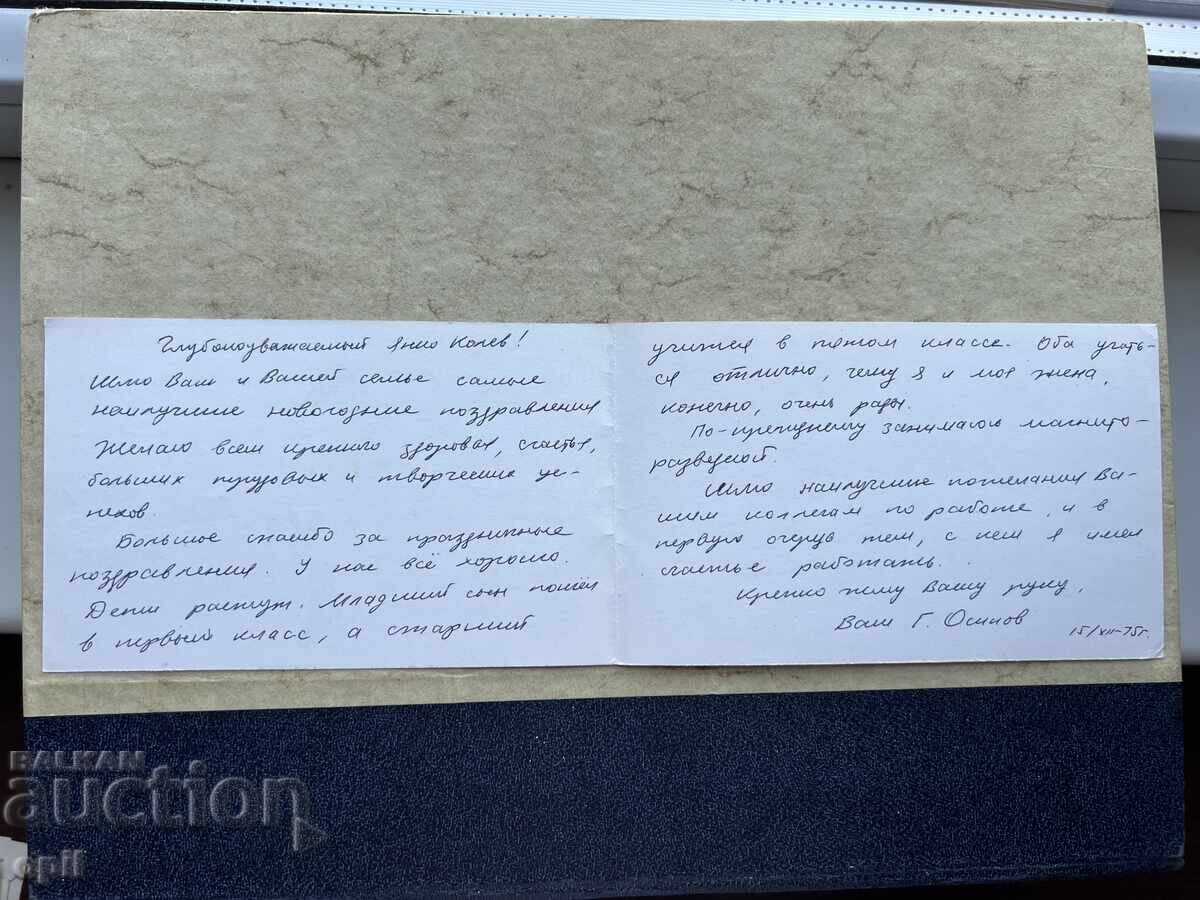 Глубокоуважаемый Янко Колев!
Шлю Вам и Вашей семье самые
наилучшие новогодние поздравления
Желаю всем крепкого здоровья, счастья,
больших трудовых и творческих ус-
пехов.
Большое спасибо за праздничные
поздравления. У нас всё хорошо.
Дети растут. Младший сын пошёл
в первый класс, а старший
учится в пятом классе. Оба учать-
ся отлично, чему я и моя жена,
конечно, очень рады.
По-прежнему занимаюсь магнито-
разведкой.
Шлю наилучшие пожелания Ва-
шим коллегам по работе, и в
первую очередь тем, с кем я имел
счастье работать.
Крепко жму Вашу руку,
Ваш Г. Осипов
15/XII-75г.
BALKAN
auction
opll